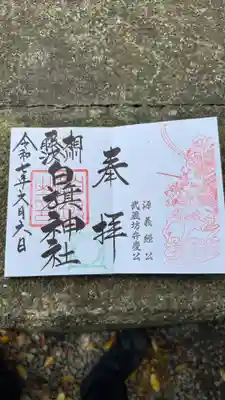 奉拝
源義經公
武蔵坊弁慶公
相州藤沢
白旗神社
令和七年六月六日